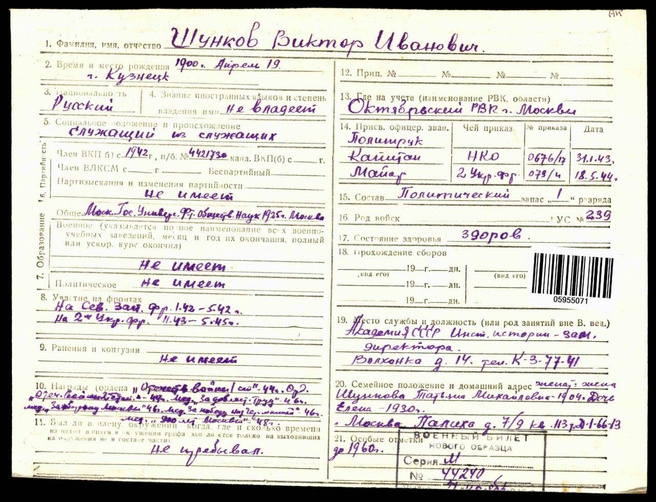 1. Фамилия, имя, отчество Шунков Виктор Иванович.
2. Время и место рождения 1900г. Апрель 19
г. Кузнецк
3. Национальность
Русский
4. Знание иностранных языков и степень
владения ими не владеет
5. Социальное положение и происхождение
служащий из служащих
6. Партийность
Член ВКП(б) с 1942г., п/б. № 4421730 канд. ВКП(б) с г.
Член ВЛКСМ с г. Беспартийный
Партвзыскания и изменения партийности
не имеет
7. Образование
Общее Моск. Гос. Универс. Фт. Обществ Наук 1925г. Москва
Военное (указывается полное наименование всех военно-
учебных заведений, месяц и год их окончания, полный
или ускор. курс окончил)
не имеет
Политическое не имеет
8. Участие на фронтах
На Сев. Зап. фр. 1.42-5.42г.
На 2м Укр. фр. 11.43-5.45г.
9. Ранения и контузии
не имеет
10. Награды (ордена
11. Был ли в плену
не пребывал.
12. Прип. № № № №
13. Где на учете (наименование РВК, области)
Октябрьский РВК г. Москвы
14. Присв. офицер. зван. Чей приказ № приказа Дата
Политрук
Капитан НКО 0676/п 31.1.43.
Майор 2 Укр. Фр. 079/н 18.5.44.
15. Состав Политический запас 1 разряда
16. Род войск УС № 239
17. Состояние здоровья здоров.
18. Прохождение сборов
19 — г. — дн. 19 — г. — дн.
(вид его) (вид его)
19 — г. — дн. 19 — г. — дн.
19 — г. — дн. 19 — г. — дн.
05955071
19. Место службы и должность (или род занятий вне В. вед.)
Академия СССР Инст. истории - зам.
директора.
Волхонка д. 14. тел. К-3-77-41
20. Семейное положение и домашний адрес женат: жена
Шункова Татьяна Михайловна-1904. Дочь
Елена-1930г.
г. Москва Палиха д. 7/9 кв. 113 т. Д-1-66-13
21. Особые отметки
до 1960г.
ВОЕННЫЙ БИЛЕТ
НОВОГО ОБРАЗЦА
Серия М
№ 44240